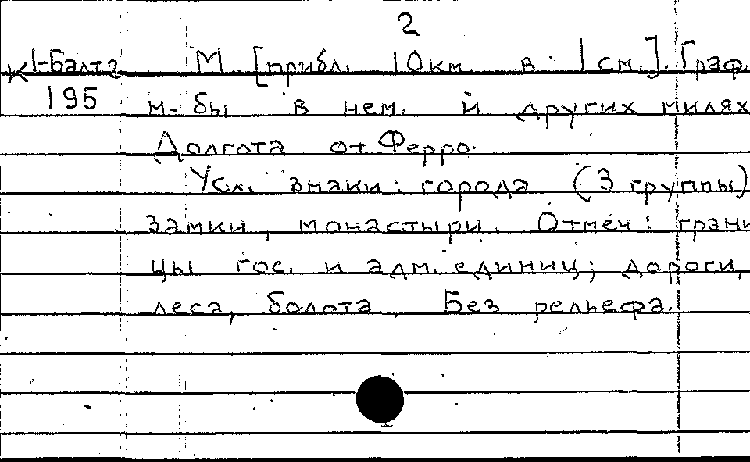 2
К1-Балт 2 М [прибл. 10км в 1 см]. Граф.
195 м-бы в нем. и других милях
Долгота от Ферро.
Усл. знаки: города (3 группы)
замки, монастыри. Отмеч: грани
цы гос. и адм. единиц; дороги,
леса, болота. Без рельефа.